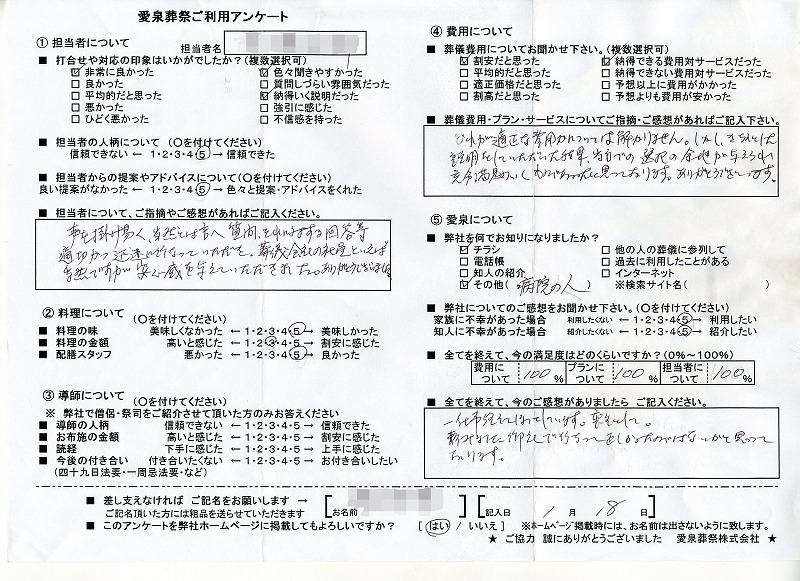 愛泉葬祭ご利用アンケート
① 担当者について
担当者名
■ 打合せや対応の印象はいかがでしたか?(複数選択可)
☑ 非常に良かった ☑ 色々聞きやすかった
□ 良かった □ 質問しづらい雰囲気だった
□ 平均的だと思った ☑ 納得いく説明だった
□ 悪かった □ 強引に感じた
□ ひどく悪かった □ 不信感を持った
■ 担当者の人柄について (〇を付けてください)
信頼できない ← 1・2・3・4・5 → 信頼できた
■ 担当者からの提案やアドバイスについて(〇を付けてください)
良い提案がなかった ← 1・2・3・4・5 → 色々と提案・アドバイスをくれた
■ 担当者について、ご指摘やご感想があればご記入ください。
② 料理について (〇を付けてください)
■ 料理の味 美味しくなかった ← 1・2・3・4・5 → 美味しかった
■ 料理の金額 高いと感じた ← 1・2・3・4・5 → 割安に感じた
■ 配膳スタッフ 悪かった ← 1・2・3・4・5 → 良かった
③ 導師について (〇を付けてください)
※ 弊社で僧侶・祭司をご紹介させて頂いた方のみお答えください
■ 導師の人柄 信頼できない ← 1・2・3・4・5 → 信頼できた
■ お布施の金額 高いと感じた ← 1・2・3・4・5 → 割安に感じた
■ 読経 下手に感じた ← 1・2・3・4・5 → 上手に感じた
■ 今後の付き合い 付き合いたくない ← 1・2・3・4・5 → お付き合いしたい
(四十九日法要・一周忌法要・など)
④ 費用について
■ 葬儀費用についてお聞かせ下さい。(複数選択可)
☑ 割安だと思った ☑ 納得できる費用対サービスだった
□ 平均的だと思った □ 納得できない費用対サービスだった
□ 適正価格だと思った □ 予想以上に費用がかかった
□ 割高だと思った □ 予想よりも費用が安かった
■ 葬儀費用・プラン・サービスについてご指摘・ご感想があればご記入下さい。
どれが適正な費用かについては解かりません。しかし、きちんとした
説明をしていただいた結果、当方での選択の余地が与えられ
充分満足のいくものであったと思っております。ありがとうございます。
⑤ 愛泉について
■ 弊社を何でお知りになりましたか?
☑ チラシ □ 他の人の葬儀に参列して
□ 電話帳 □ 過去に利用したことがある
□ 知人の紹介 □ インターネット
☑ その他( 病院の人 ) ※検索サイト名( )
■ 弊社についてのご感想をお聞かせ下さい。(〇を付けてください)
家族に不幸があった場合 利用したくない ← 1・2・3・4・5 → 利用したい
知人に不幸があった場合 紹介したくない ← 1・2・3・4・5 → 紹介したい
■ 全てを終えて、今の満足度はどのくらいですか?(0%~100%)
費用について 100 % プランについて 100 % 担当者について 100 %
■ 全てを終えて、今のご感想がありましたら ご記入ください。
■ 差し支えなければ ご記名をお願いします →
ご記名頂いた方には粗品を送らせていただきます
[お名前 ] [記入日 1 月 18 日]
■ このアンケートを弊社ホームページに掲載してもよろしいですか? [ はい / いいえ ] ※ホームページ掲載時には、お名前は出さないように致します。
★ ご協力 誠にありがとうございました 愛泉葬祭株式会社 ★